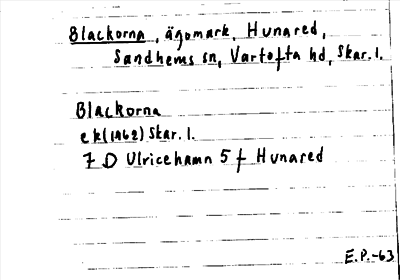 Blackorna, ägomark, Hunared,
Sandhems sn, Vartofta hd, Skar. l.
Blackorna
ek (1962) Skar. l.
7 D Ulricehamn 5 f Hunared
E.P.-63